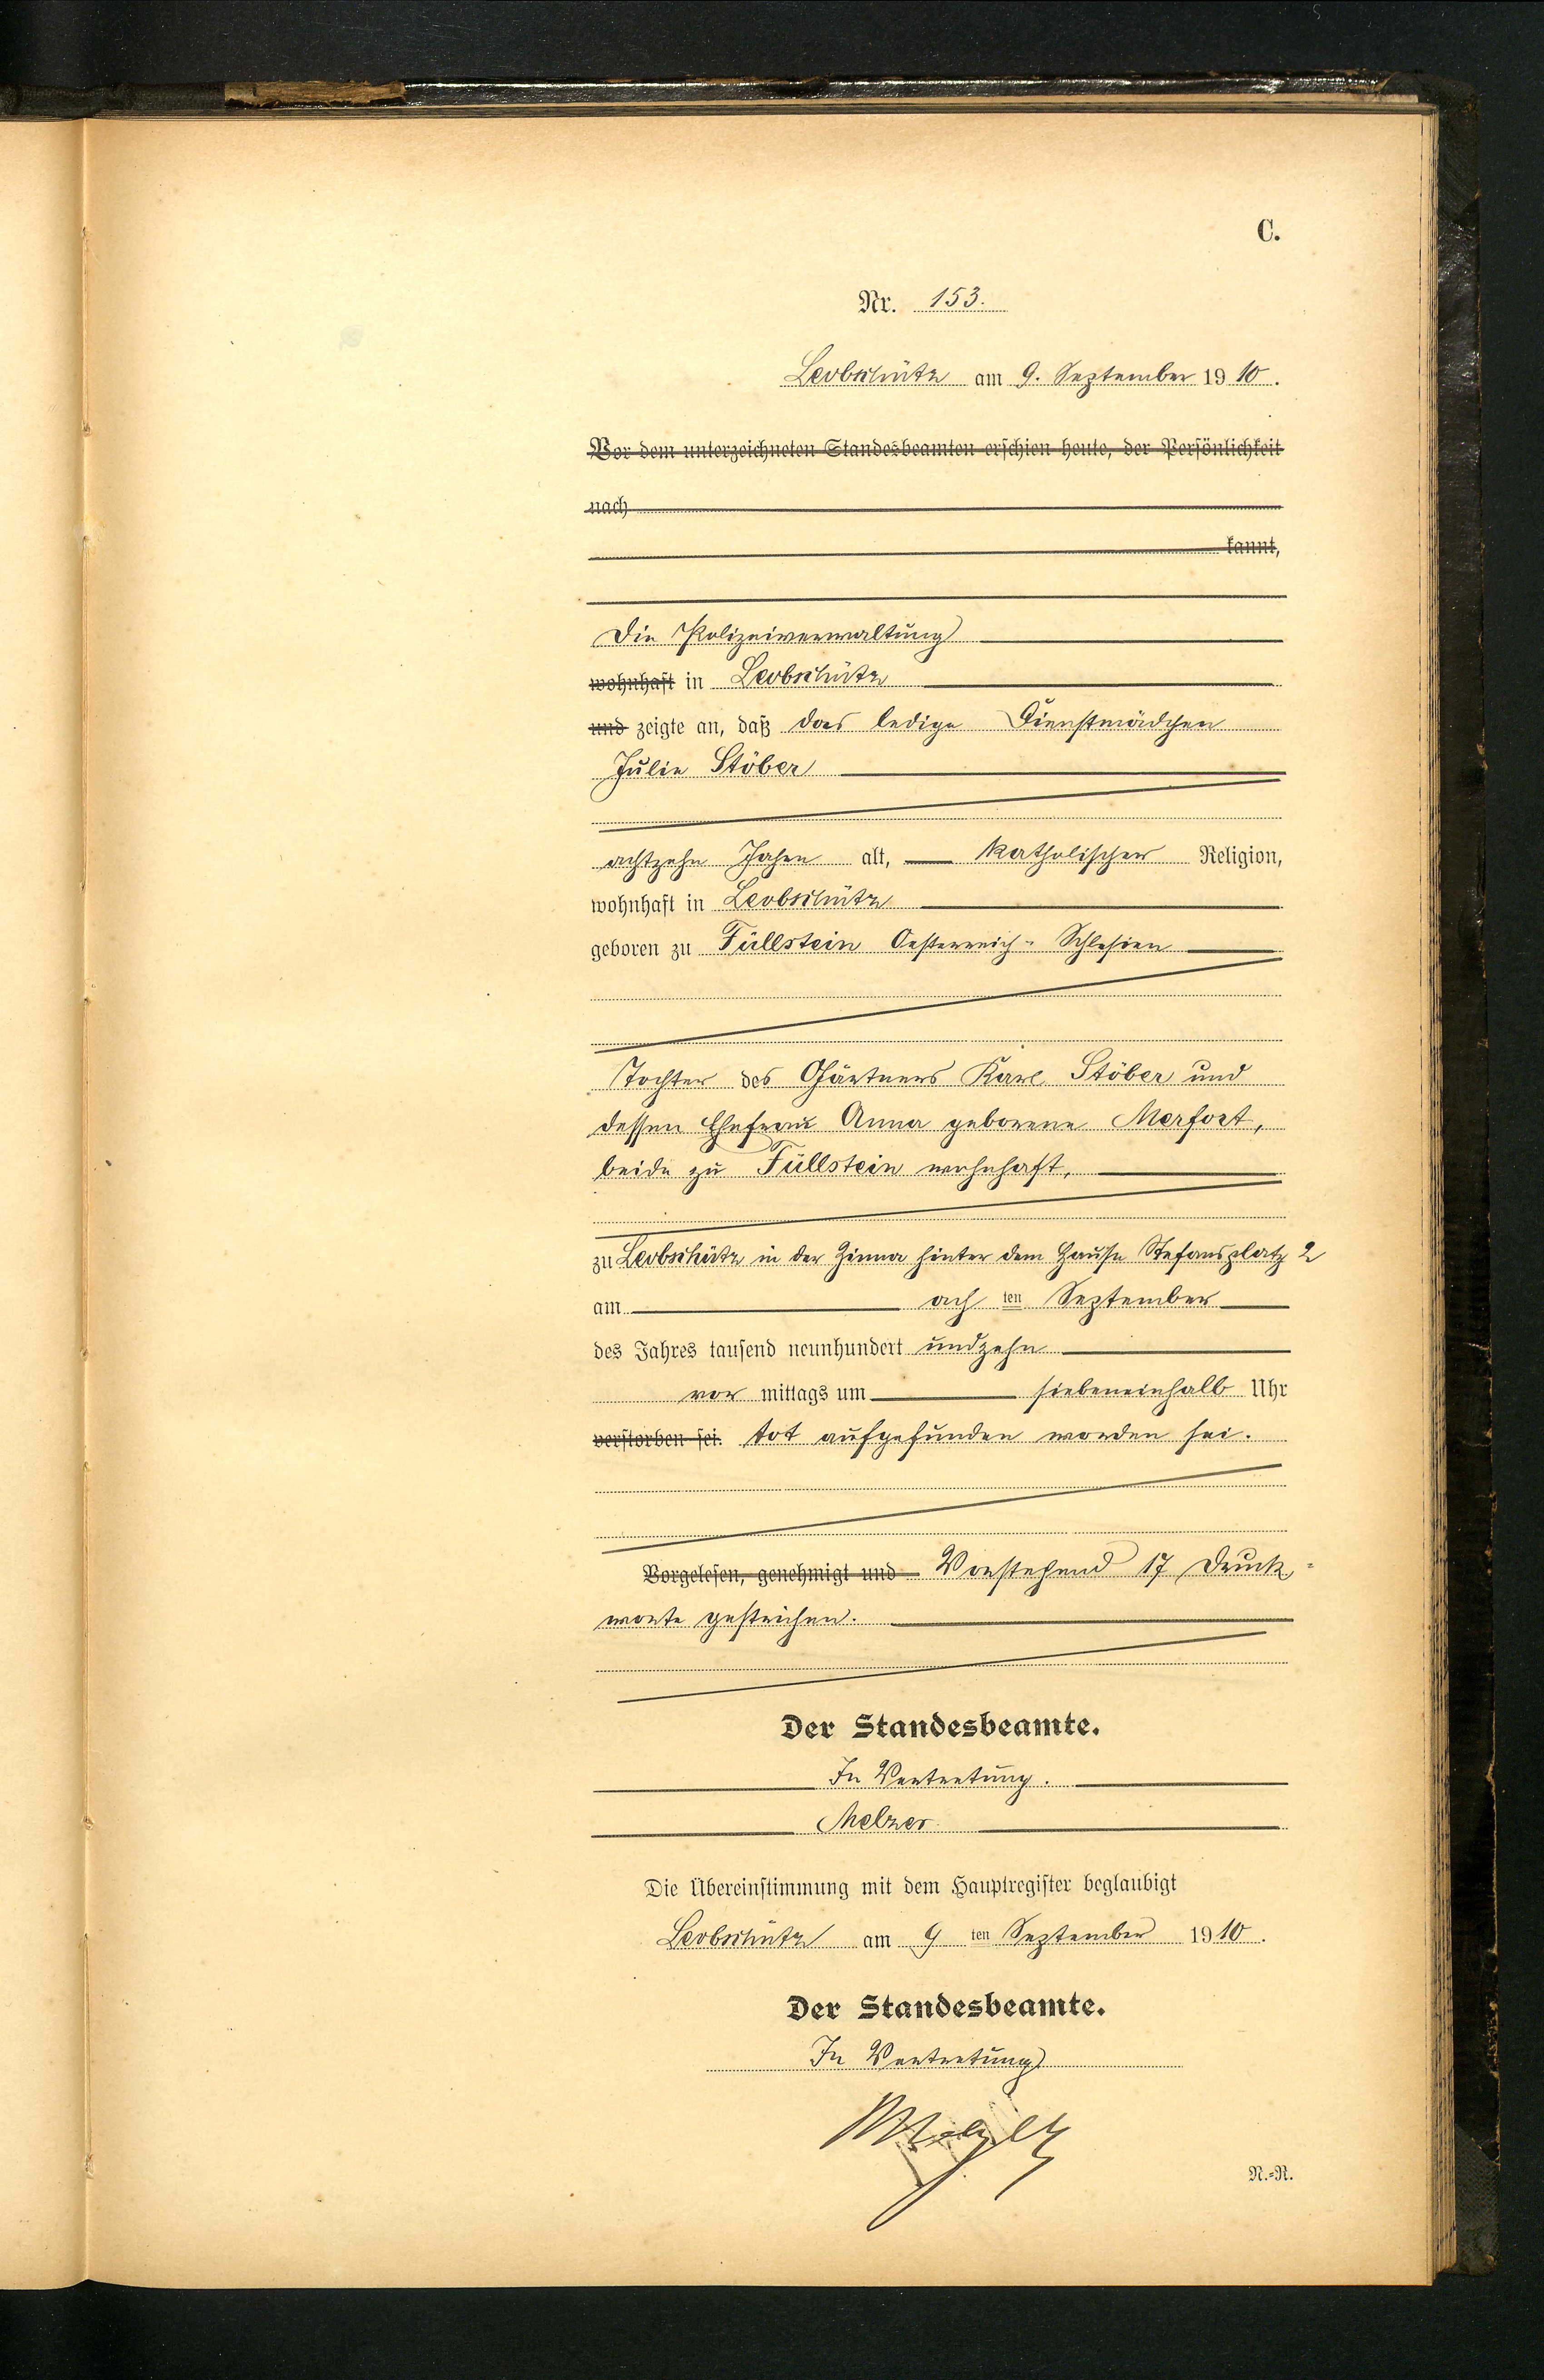 C.
Nr. 153.
Leobschütz am 9. September 1910.
Vor dem unterzeichneten Standesbeamten erschien heute, der Persönlichkeit
nach
kannt,
Die Polizeiverwaltung
wohnhaft in Leobschütz
und zeigte an, daß das ledige Dienstmädchen
Julie Stöber
achtzehn Jahre alt, katholischer Religion,
wohnhaft in Leobschütz
geboren zu Füllstein Oesterreich-Schlesien
Tochter des Gärtners Karl Stöber und
dessen Ehefrau Anna geborene Merfort,
beide zu Füllstein wohnhaft,
zu Leobschütz in der Zinna hinter dem Hause Stefansplatz 2
am ach ten September
des Jahres tausend neunhundert undzehn
vor mittags um siebeneinhalb Uhr
verstorben sei. tot aufgefunden worden sei.
Vorgelesen, genehmigt und Vorstehend 17 Druck-
worte gestrichen.
Der Standesbeamte.
In Vertretung.
Melzer
Die Übereinstimmung mit dem Hauptregister beglaubigt
Leobschütz am 9 ten September 1910.
Der Standesbeamte.
In Vertretung
N.-R.